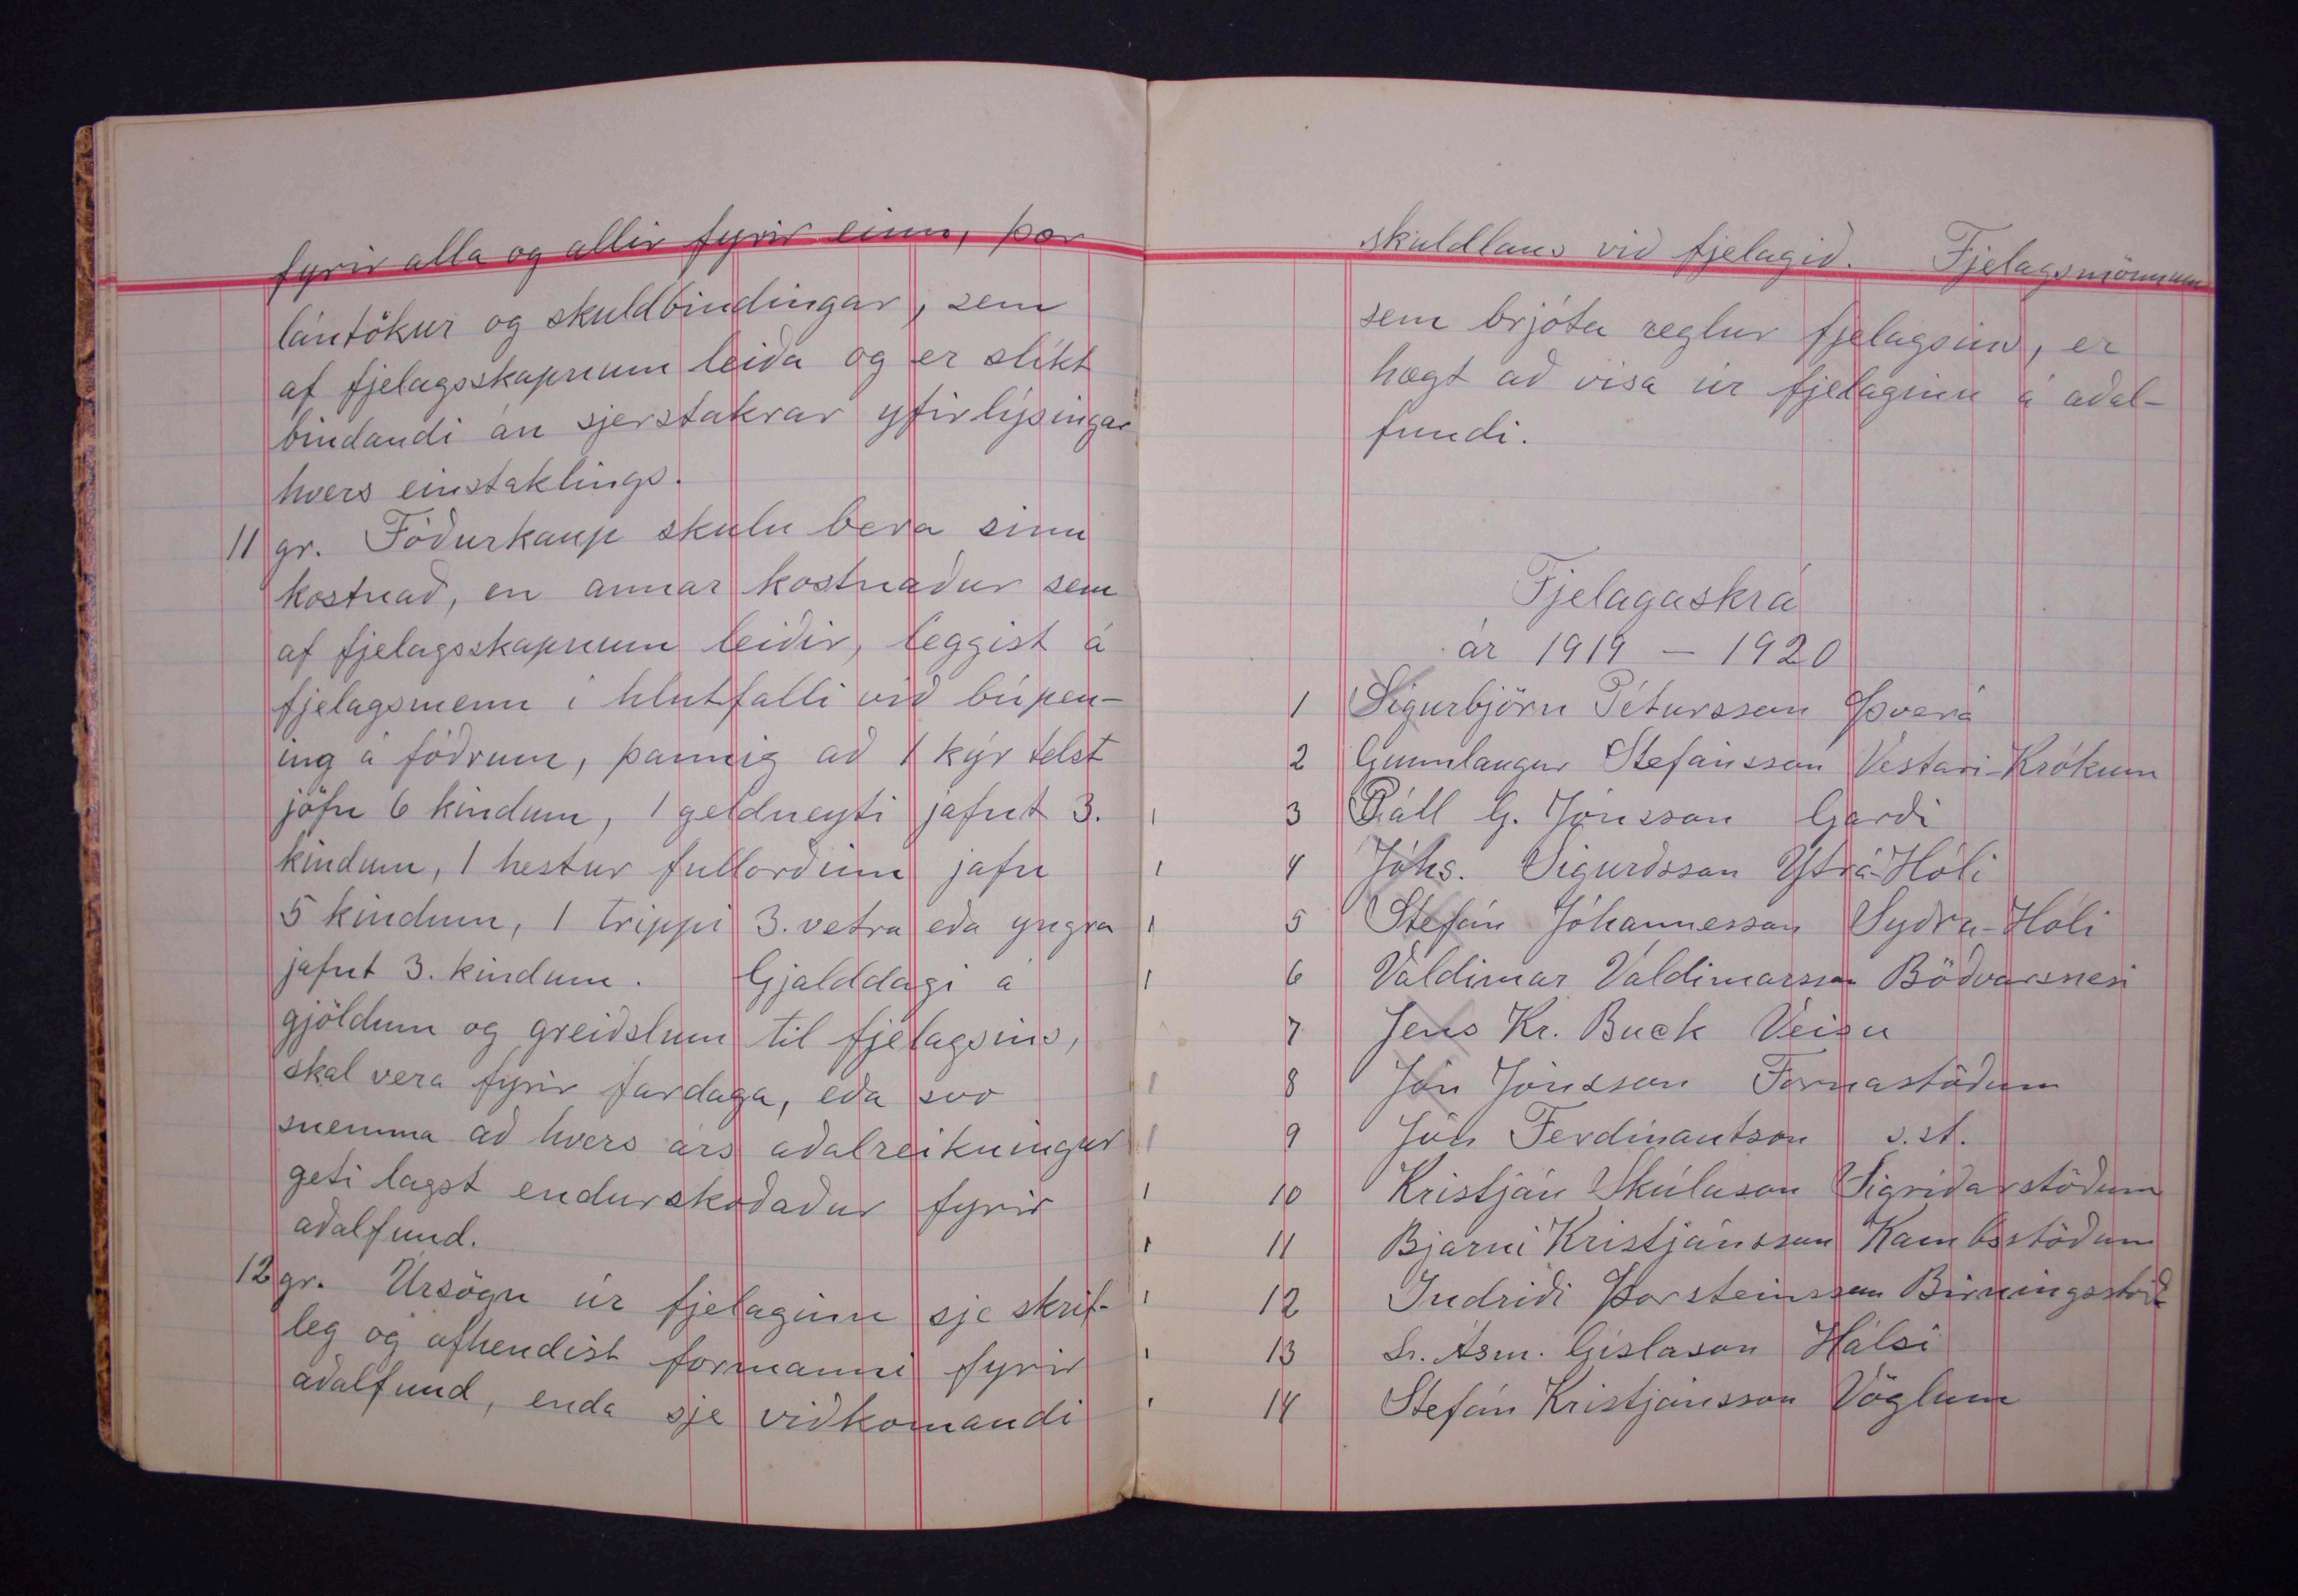 fyrir alla og allir fyrir einn, þær
lántökur og skuldbindingar, sem
af fjelagsskapnum leiða og er slíkt
bindandi án sjerstakrar yfirlýsingar
hvers einstaklings.
11 gr. Fóðurkaup skulu bera sinn
kostnað, en annar kostnaður sem
af fjelagsskapnum leiðir, leggist á
fjelagsmenn í hlutfalli við búpen-
ing á fóðrum, þannig að 1 kýr telst
jöfn 6 kindum, 1 geldneyti jafnt 3.
kindum, 1 hestur fullorðinn jafn
5 kindum, 1 trippi 3. vetra eða yngra
jafnt 3. kindum. Gjalddagi á
gjöldum og greiðslum til fjelagsins,
skal vera fyrir fardaga, eða svo
snemma að hvers árs aðalreikningur
geti lagst endurskoðaður fyrir
aðalfund.
12 gr. Úrsögn úr fjelaginu sje skrif-
leg og afhendist formanni fyrir
aðalfund, enda sje viðkomandi
skuldlaus við fjelagið. Fjelagsmönnum
sem brjóta reglur fjelagsins, er
hægt að vísa úr fjelaginu á aðal-
fundi.
Fjelagaskrá
ár 1919 - 1920
1 Sigurbjörn Pétursson Þverá
2 Gunnlaugur Stefánsson Vestari-Krókum
1 3 Páll G. Jónsson Garði
1 4 Jóhs. Sigurðsson Ytra-Hóli
1 5 Stefán Jóhannesson Syðra-Hóli
1 6 Valdimar Valdimarsson Böðvarsnesi
7 Jens Kr. Buck Veisu
1 8 Jón Jónsson Fornastöðum
1 9 Jón Ferdinantson s.st.
1 10 Kristján Skúlason Sigríðarstöðum
1 11 Bjarni Kristjánsson Kambsstöðum
1 12 Indriði Þorsteinsson Birningsstöð
1 13 Sr. Ásm. Gíslason Hálsi
1 14 Stefán Kristjánsson Vöglum